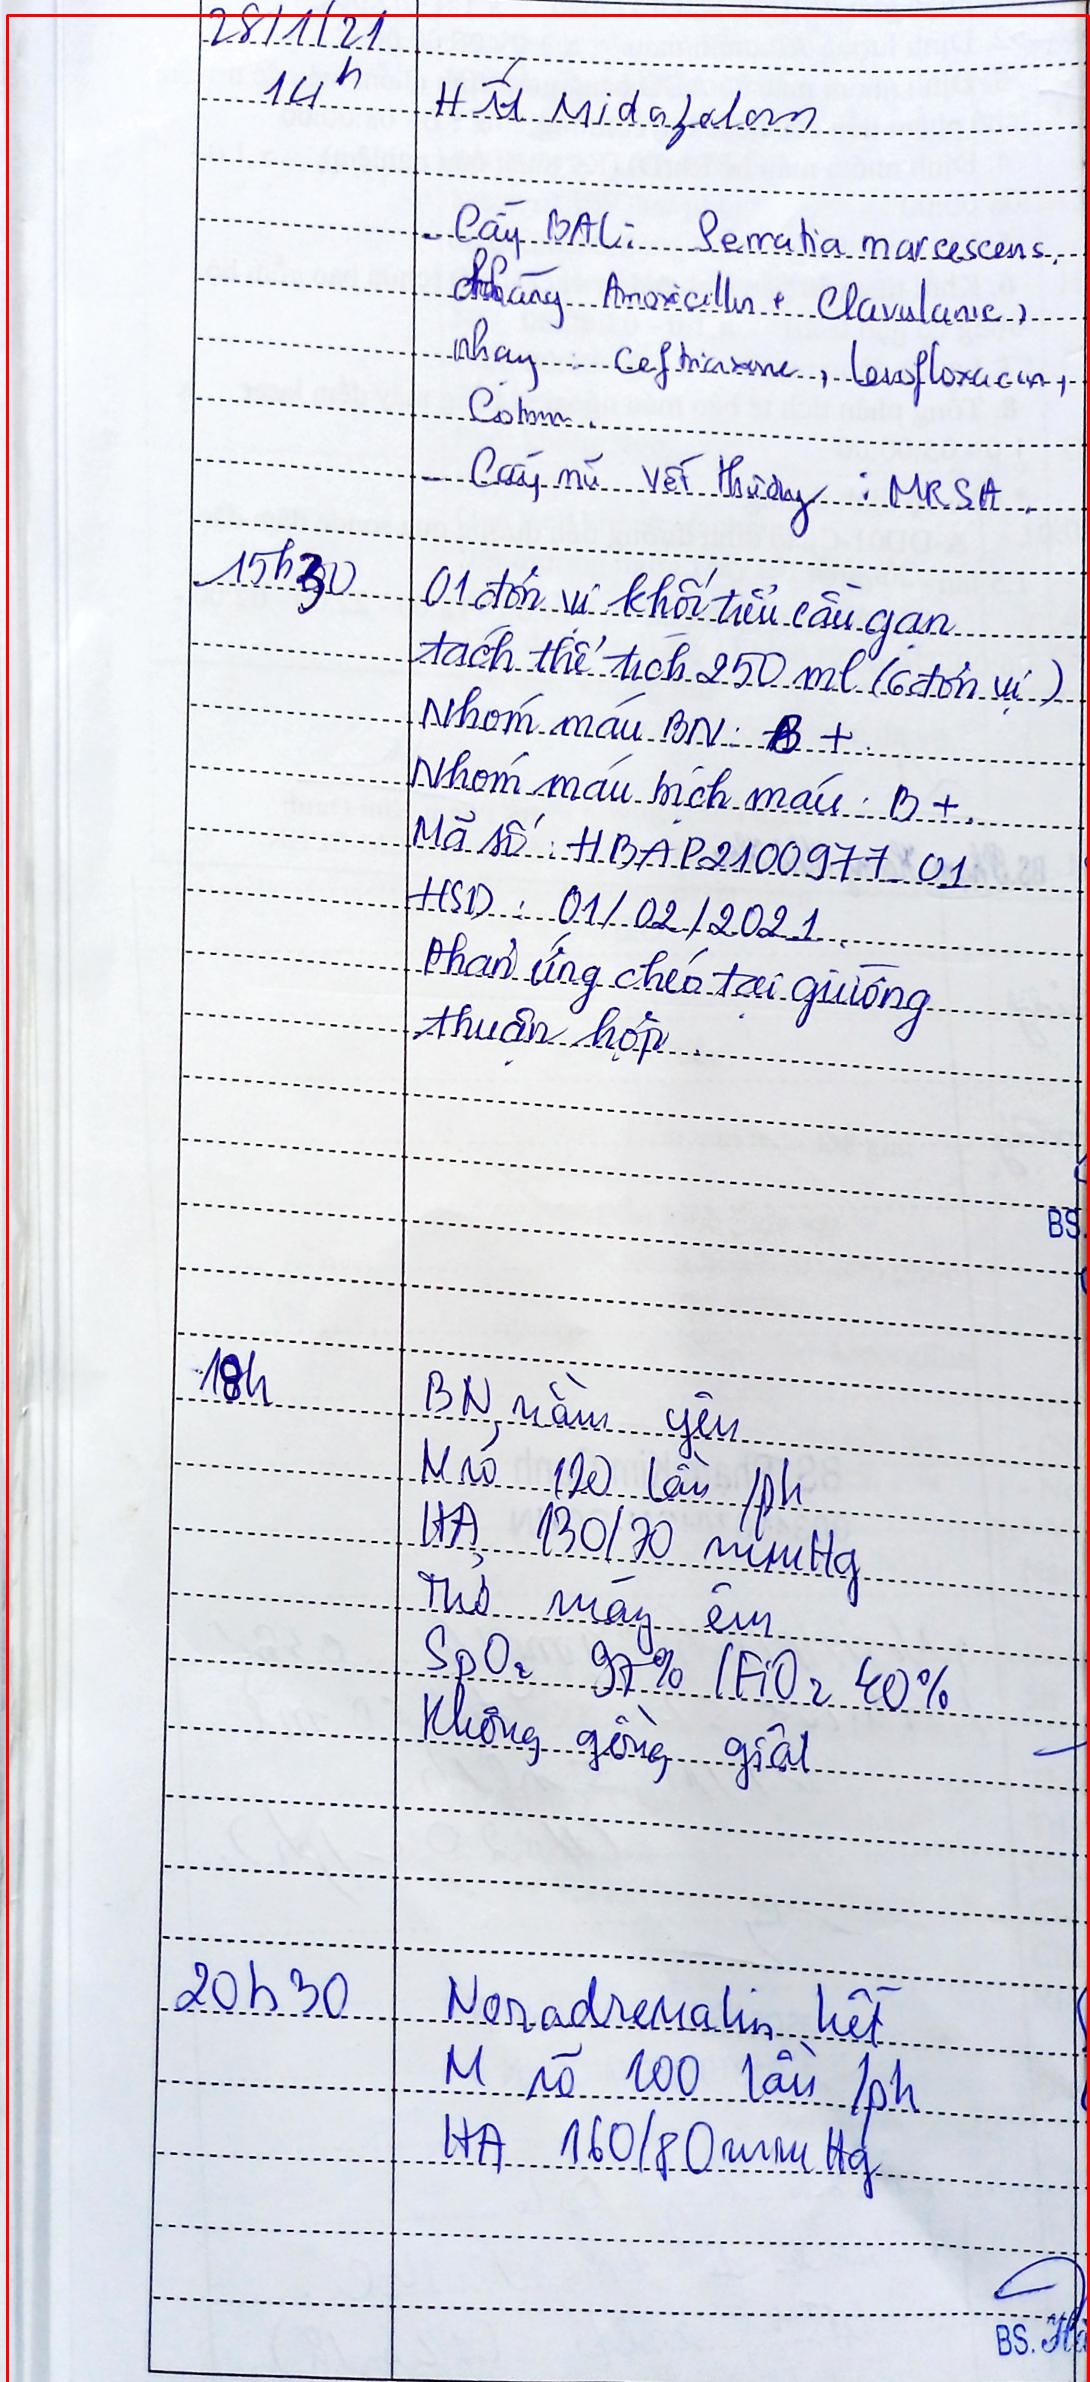 28/1/21
14h Hết Midazolam
- Cấy BAL: Serratia marcescens,
kháng Amoxicillin + Clavulanic,
nhạy: Ceftriaxone, levofloxacin,
Cotrim.
- Cấy mủ vết thương: MRSA.
15h30 01 đơn vị khối tiểu cầu gạn
tách thể tích 250 ml (6 đơn vị)
Nhóm máu BN: B +.
Nhóm máu bịch máu: B +.
Mã số: HBAP2100977-01
HSD: 01/02/2021.
Phản ứng chéo tại giường
thuận hợp.
BS.
18h BN nằm yên
M rõ 120 lần /ph
HA 130/70 mmHg
Thở máy êm
SpO2 97% /FiO2 40%
Không gồng giật
20h30 Noradrenalin hết
M rõ 100 lần /ph
HA 160/80 mmHg
BS.